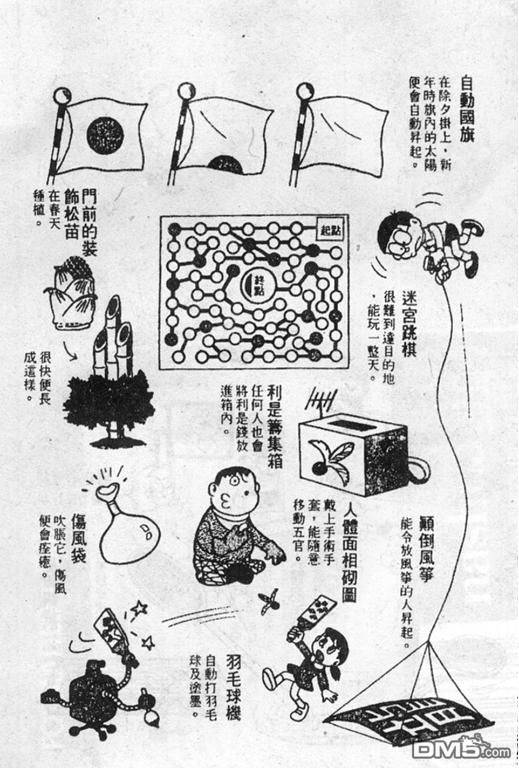 自動國旗
在除夕掛上，新
年時旗內的太陽
便會自動昇起。
門前的裝
飾松苗
在春天
種植。
很快便長
成這樣。
起點
終點
迷宮跳棋
很難到達目的地
，能玩一整天。
利是籌集箱
任何人也會
將利是錢放
進箱內。
傷風袋
吹脹它，傷風
便會痊癒。
人體面相砌圖
戴上手術手
套，能隨意
移動五官。
顛倒風箏
能令放風箏的人昇起。
羽毛球機
自動打羽毛
球及塗墨。
DM5.com